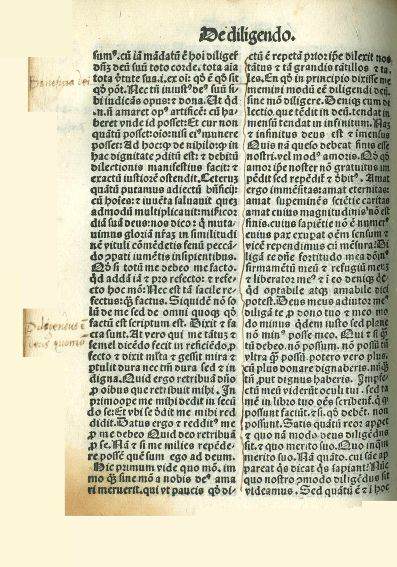 De diligendo.
sum⁹. cū iā mādatū ē hoi diligēt
dñz deū suū toto corde. tota aīa
tota v̄tute sua. i. ex oī: qđ ē qđ sit
qđ pōt. Nec tn̄ iniust⁹ de⁹ suū si
bi indicās opus: ꝛ dona.
.n. nō amaret op⁹ artificē: cū ha
beret vnde id posset: Et cur non
quātū posset:
posset: Ad hoc: de nihilo: in
hac dignitate ꝯdit ꝛ debitū
dilectionis manifestius facit: ꝛ
exactū iustiorē ostendit. Ceterū
quātū putamus adiectū bn̄ficij:
cū hoīes: ꝛ iumēta saluauit quē
admodū multiplicauit misericor
diā suā deus: nos dico: q̄ muta
uimus gloriā nr̄am in similitudi
nē vituli comedētis fenū peccā
do ꝯpati iumētis insipientibus.
Qđ si totū me debeo me facto.
qđ addā iā ꝛ pro refecto: ꝛ refe
cto hoc mō: Nec est tā facile re
fectus: q̄ factus. Siquidē nō so
lū de me sed de omni quoqꝫ qđ
factū est scriptum est. Dixit ꝛ fa
cta sunt. At vero qui me tātū ꝛ
semel dicēdo fecit in reficiēdo ꝓ
fecto ꝛ dixit mlta ꝛ gessit mira ꝛ
ꝑtulit dura nec tm̄ dura sed ꝛ in
digna. Quid ergo retribuā dn̄o
ꝓ oībus que retribuit mihi. In
primo ope me mihi dedit in secū
do se: Et vbi se dedit me mihi red
didit. Datus ergo ꝛ redditꝰ me
ꝓ me debeo Quid deo retribuā
ꝓ se. Nā ꝛ si me milies repēde
re possē quē sum ego ad deum.
Hic primum vide quo mō. im
mo q̄ sine mō a nobis de⁹ ama
ri meruerit. qui vt paucis qđ di-
ctū ē repetā prior ip̄e dilexit nos
tātus ꝛ tā grandis tātillos ꝛ ta
les. En qđ in principio dixisse me
memini modū ē diligendi deū
sine mō diligere. Deniqꝫ cum di
lectio que tēdit in deū. tendat in
mensū tendat in infinitum. Nam
ꝛ infinitus deus est ꝛ imensus
Quis nā queso debeat finis esse
nostri. vel mod⁹ amoris. Qđ qđ
amor ip̄e noster nō gratuitus im
pēdit̄ sed rependit̄ ꝛ debit⁹. Amat
ergo immēsitas: amat eternitas:
amat supeminēs sciētie caritas
amat cuius magnitudinis nō est
finis. cuius sapiētie nō ē numer⁹
cuius pax exupat oēm sensum ꝛ
vice rependimus cū mēsura: Di
ligā te dn̄e fortitudo mea dn̄s
firmamētū meū ꝛ refugiū meuꝫ
ꝛ liberator me⁹ ꝛ i eo deniqꝫ qc
qd optabile atqꝫ amabile dici
potest. Deus meus adiutor me⁹
diligā te ꝓ dono tuo ꝛ meo mō
mō minus qdem iusto sed plane
nō min⁹ posse meo. Qui ꝛ si q̄tū
ti debeo. nō possum. nō possū tn̄
vltra q̄ possū. potero vero plus.
cū plus donare dignaberis. nūqꝫ
tn̄ ꝓut dignus haberis. Impfe-
ctū meū viderūt oculi tui. sed ta
mē in libro tuo oēs scribent̄. qui qđ
possunt faciūt. ꝛ si. qđ debēt. non
possunt. Satis quātū reor appet
ꝛ quo nā modo deus diligēdus
sit. ꝛ quo merito suo Quo inquā
merito suo. Nā quāto. cui satis ap
pareat qs dicat qs sapiat: Nūc
quo nostro ꝯmodo diligēdus sit
videamus. Sed quātū ē ꝛ i hoc